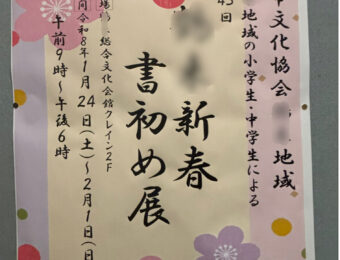 文化協会 地域
地域の小学生・中学生による
回
新春
書初め展
総合文化会館クレイン2F
間 令和8年1月24日(土)〜2月1日(日
午前9時〜午後6時